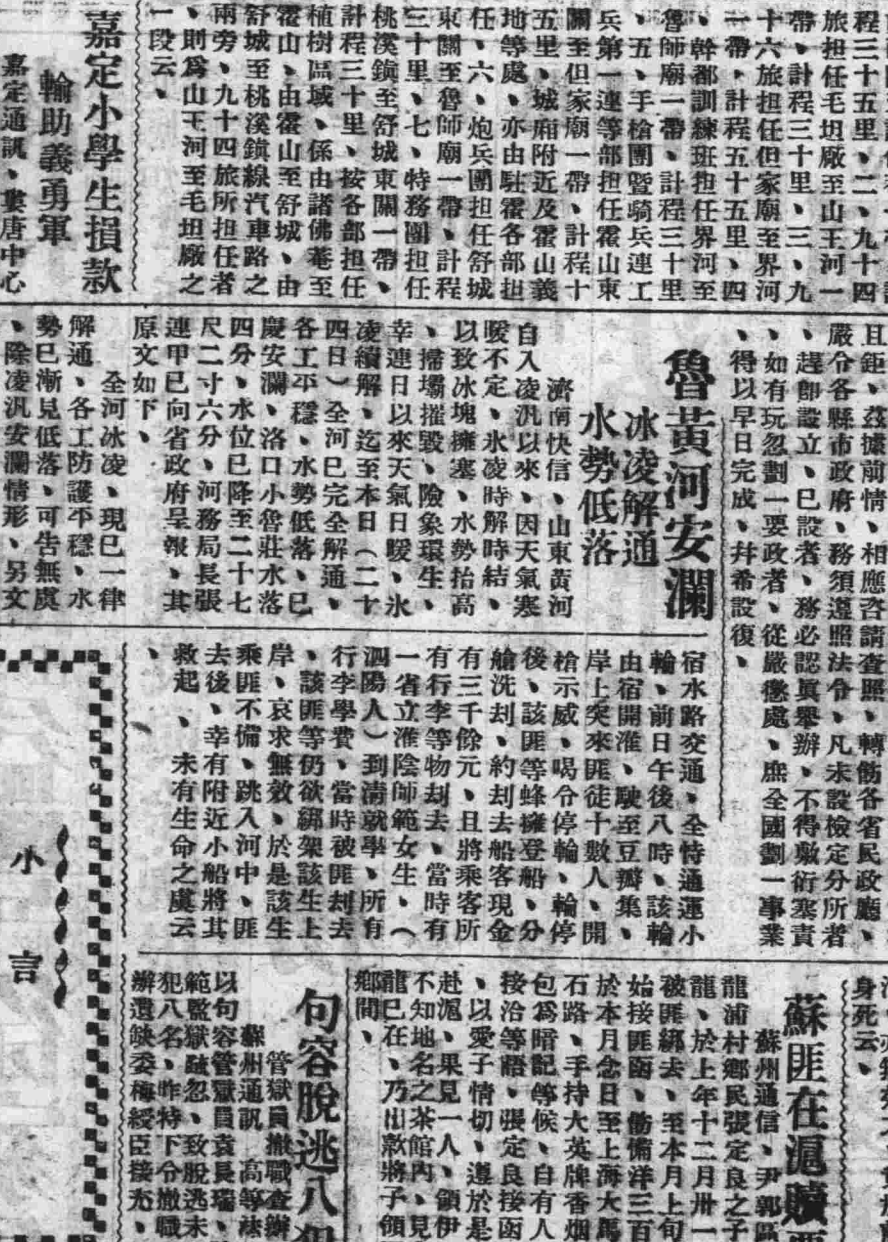 程三十五里、二、九十四
旅担任毛坦厰至山王河一
帶、計程三十里、三、九
十六旅担任但家廟至界河
一帶、計程五十五里、四
、幹部訓練班担任界河至
魯師廟一帶、計程三十里
、五、手槍團暨騎兵連工
兵第一連等部担任霍山東
關至但家廟一帶、計程十
五里、城廂附近及霍山義
地等處、亦由駐霍各部担
任、六、炮兵團担任舒城
東關至魯師廟一帶、計程
三十里、七、特務團担任
桃溪鎭至舒城東關一帶、
計程三十里、按各部担任
植樹區域、係由諸佛菴至
霍山、由霍山至舒城、由
舒城至桃溪鎭線汽車路之
兩旁、九十四旅所担任者
、則爲山王河至毛坦厰之
一段云、
嘉定小學生損款
輸助義勇軍
嘉定通訊、婁唐中心
且鉅、茲據前情、相應咨請查照、轉飭各省民政廳、
嚴令各縣市政府、務須遵照法令、凡未設檢定分所者
、趕卽設立、已設者、務必認眞舉辦、不得敷衍塞責
、如有玩忽劃一要政者、從嚴懲處、庶全國劃一事業
、得以早日完成、幷希設復、
魯黃河安瀾
冰凌解通
水勢低落
濟南快信、山東黃河
自入凌汛以來、因天氣寒
暖不定、氷凌時解時結、
以致冰塊擁塞、水勢抬高
、掃壩摧毀、險象環生、
幸連日以來天氣日暖、氷
凌續解、迄至本日(二十
四日)全河已完全解通、
各工平穩、水勢低落、已
慶安瀾、洛口小魯莊水落
四分、水位已降至二十七
尺二寸六分、河務局長張
連甲已向省政府呈報、其
原文如下、
全河冰凌、現已一律
解通、各工防護平穩、水
勢已漸見低落、可告無虞
、除凌汛安瀾情形、另文
宿水路交通、全恃通運小
輪、前日午後八時、該輪
由宿開淮、駛至豆瓣集、
岸上突來匪徒十數人、開
槍示威、喝令停輪、輪停
後、該匪等蜂擁登船、分
艙洗刦、約刦去船客現金
有三千餘元、且將乘客所
有行李等物刦去、當時有
一省立淮陰師範女生、(
泗陽人)到淸就學、所有
行李學費、當時被匪刦去
、該匪等仍欲綁架該生上
岸、哀求無效、於是該生
乘匪不備、跳入河中、匪
去後、幸有附近小船將其
救起、未有生命之虞云
、
小言
身死云、
蘇匪在滬贖票
蘇州通信、尹郭區
龍浦村鄉民張定良之子
龍、於上年十二月卅一
被匪綁去、至本月上旬
始接匪函、飭備洋三百
於本月念日至上海大馬
石路、手持大英牌香烟
包爲暗記等候、自有人
接洽等語、張定良接函
、以愛子情切、遵於是
赴滬、果見一人、領伊
不知地名之茶館內、見
龍已在、乃出欵將子領
鄉間、
句容脫逃八犯
管獄員撤職查辦
蘇州通訊、高等法
以句容管獄員袁長瑞、
範監獄疏忽、致脫逃未
犯八名、昨特下令撤職
辦遺缺委梅綬臣接充、